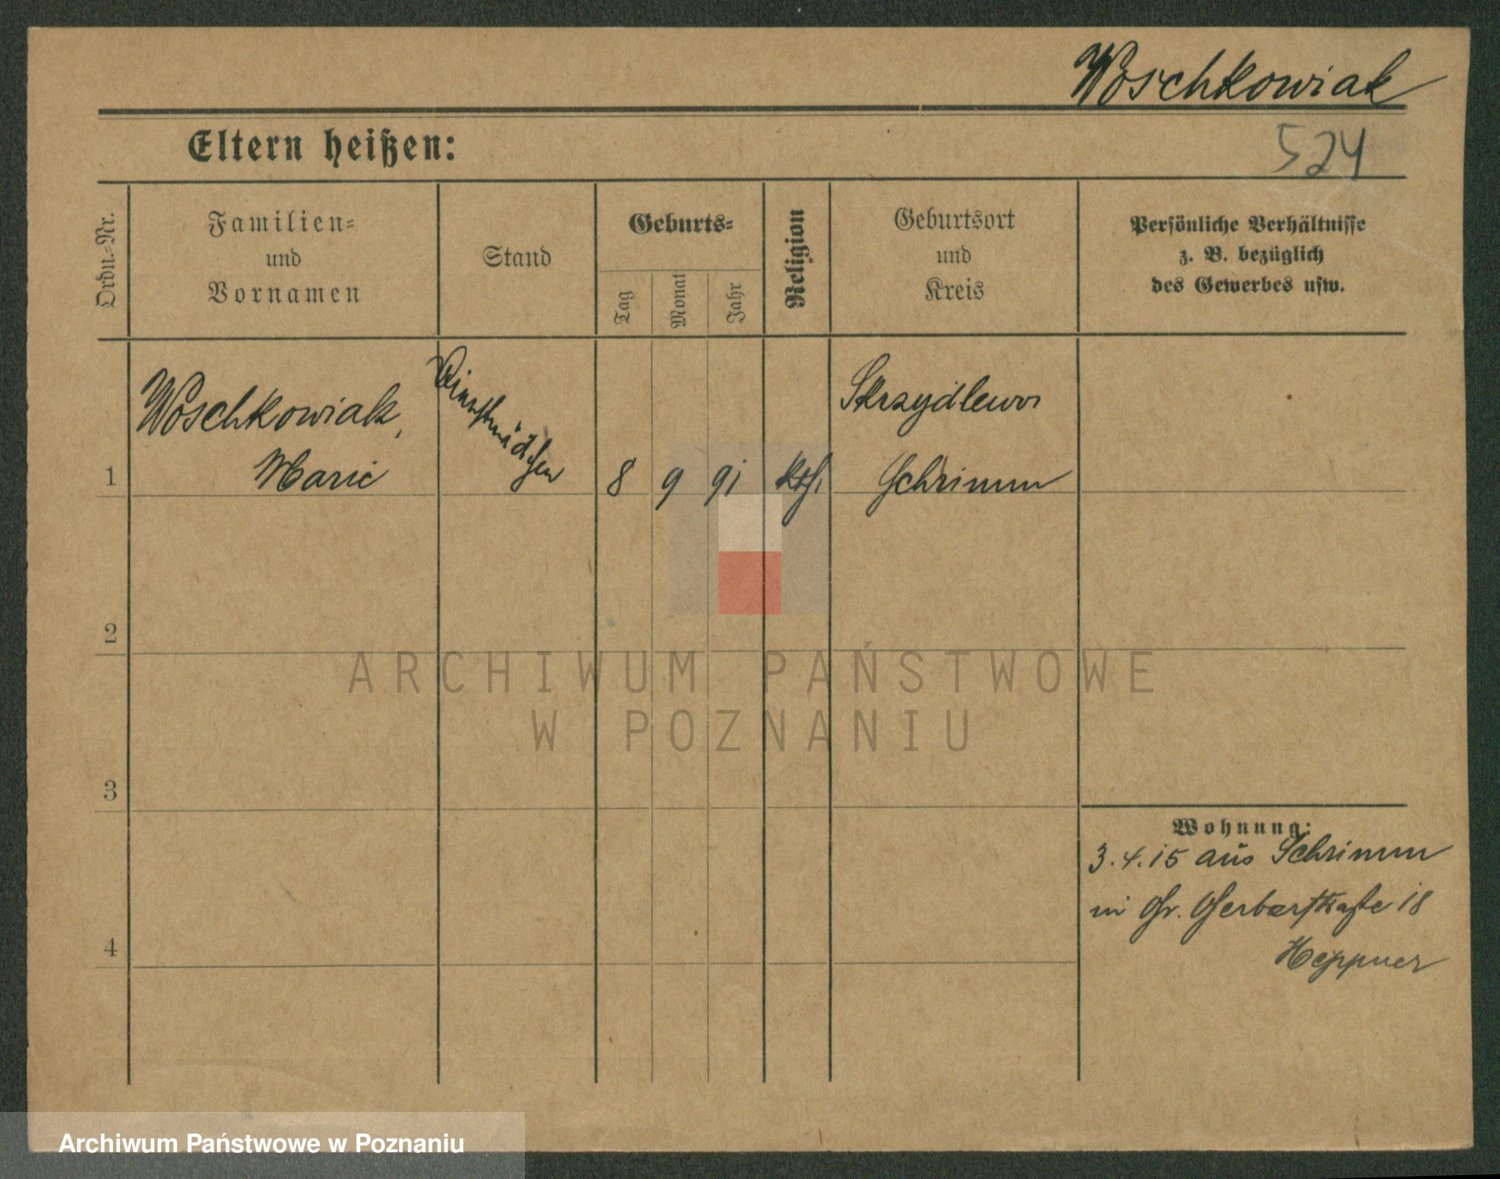 Woschkowiak
Eltern heißen:
524
Ordn.-Nr.
Familien-
und
Vornamen
Stand
Geburts-
Tag
Monat
Jahr
Religion
Geburtsort
und
Kreis
Persönliche Verhältnisse
z. B. bezüglich
des Gewerbes usw.
1
Woschkowiak,
Marie
Dienstmädchen
8
9
91
kth.
Skrzydlewo
Schrimm
2
3
4
Wohnung:
3.4.15 aus Schrimm
in Gr. Gerberstraße 18
Heppner
ARCHIWUM PAŃSTWOWE
W POZNANIU
Archiwum Państwowe w Poznaniu